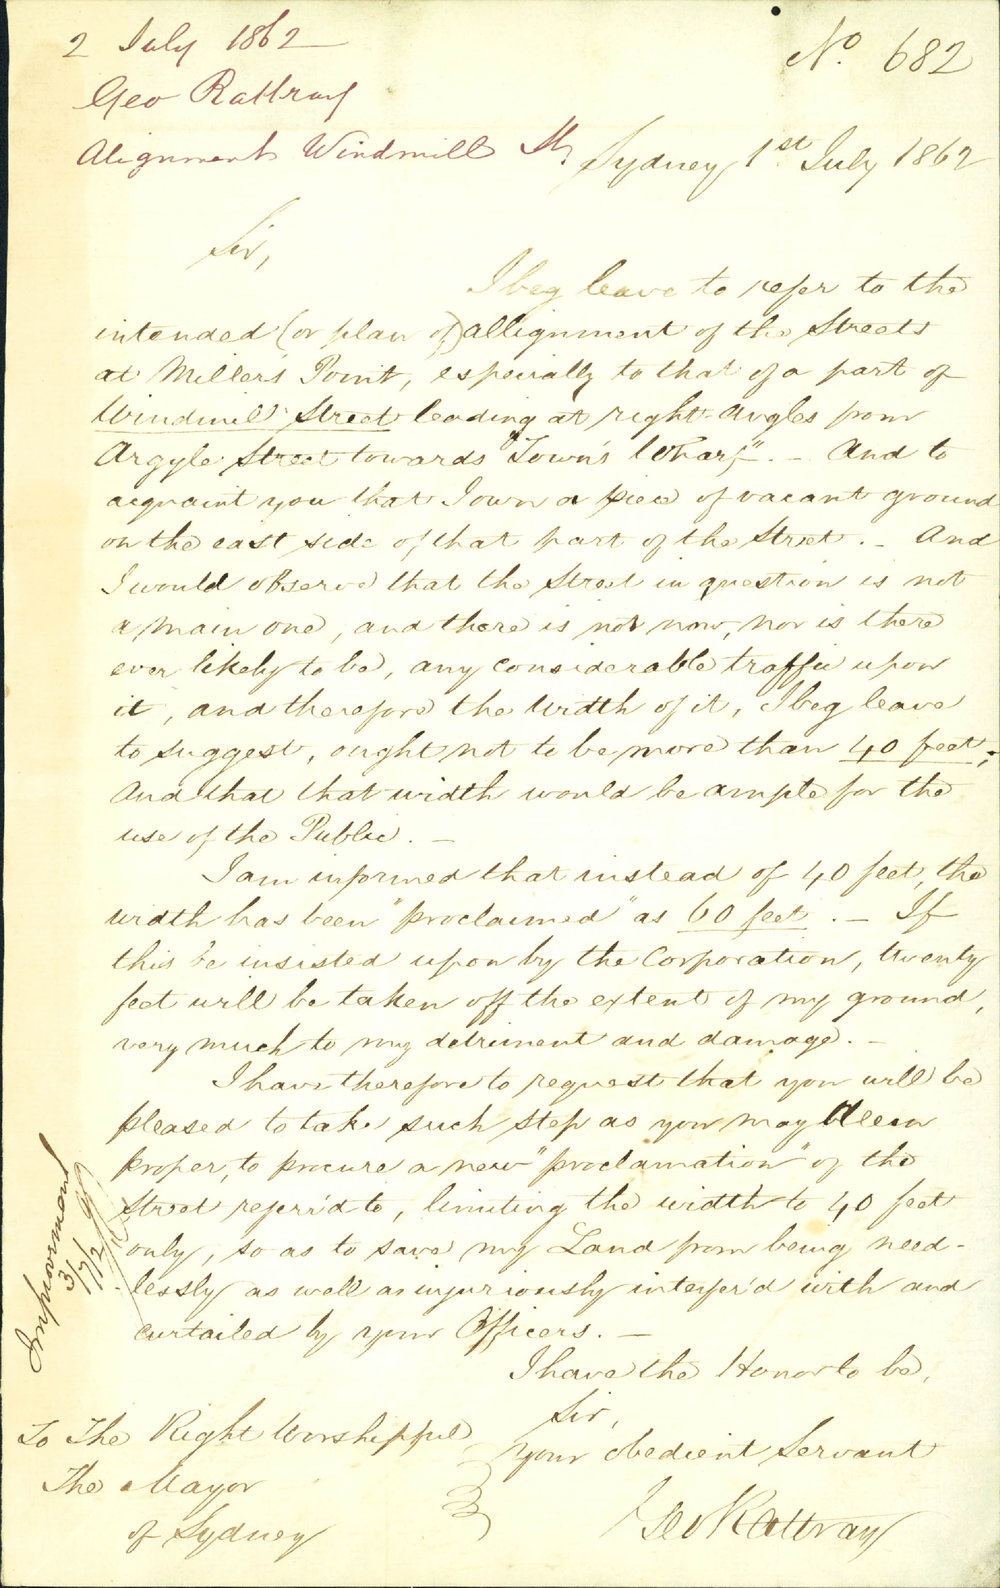 2 July 1862
Geo Rattray
Alignment Windmill St
No. 682
Sydney 1st July 1862
Sir,
I beg leave to refer to the
intended (or plan of) allignment of the Streets
at Millers Point, especially to that of a part of
Windmill Street leading at right-angles from
Argyle Street towards "Town's Wharf". - And to
acquaint you that I own a piece of vacant ground
on the east side of that part of the Street. - And
I would observe that the Street in question is not
a main one, and there is not now, nor is there
ever likely to be, any considerable traffic upon
it, and therefore the width of it, I beg leave
to suggest, ought not to be more than 40 feet;
And that that width would be ample for the
use of the Public. -
I am informed that instead of 40 feet, the
width has been "proclaimed" as 60 feet. - If
this be insisted upon by the Corporation, twenty
feet will be taken off the extent of my ground,
very much to my detriment and damage. -
I have therefore to request that you will be
pleased to take such step as you may deem
proper, to procure a new "proclamation" of the
Street referr'd to, limiting the width to 40 feet
only, so as to save my Land from being need-
lessly as well as injuriously interfer'd with and
curtailed by your Officers. -
I have the Honor to be,
Sir,
Your obedient Servant
Geo Rattray
To The Right Worshipful
The Mayor
of Sydney
Improvement
3/7/62